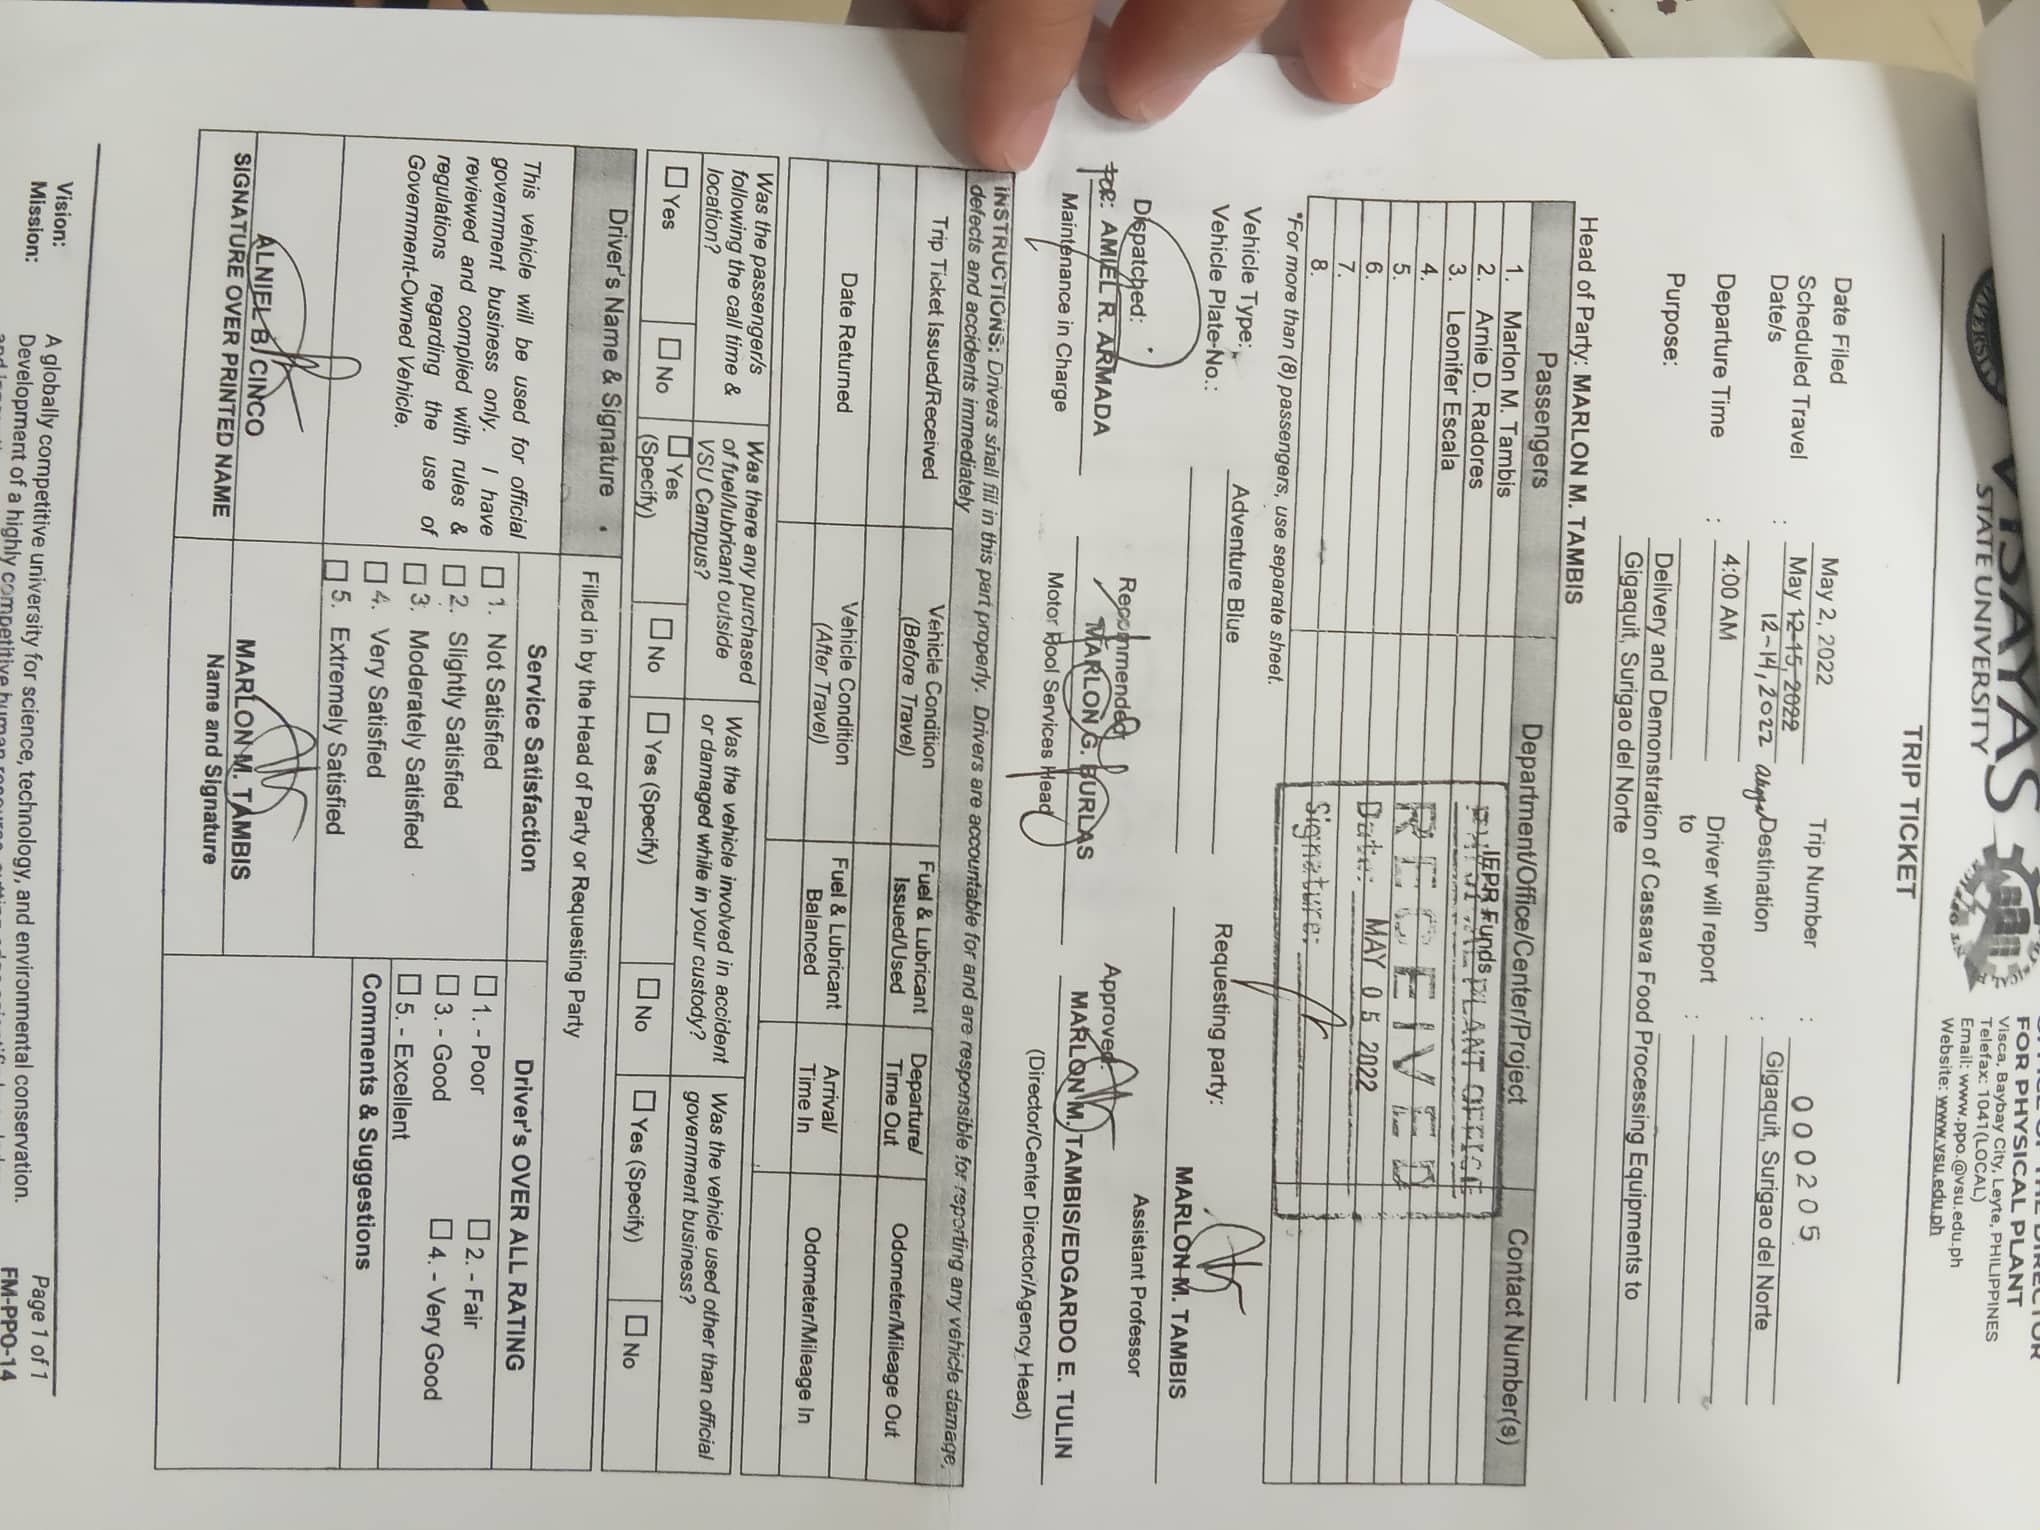 VISAYAS
STATE UNIVERSITY
FOR PHYSICAL PLANT
Visca, Baybay City, Leyte, PHILIPPINES
Telefax: 1041(LOCAL)
Email: www.ppo.@vsu.edu.ph
Website: www.vsu.edu.ph
TRIP TICKET
Date Filed May 2, 2022 Trip Number : 000205
Scheduled Travel Date/s : May 12-15, 2022 Destination : Gigaquit, Surigao del Norte
12-14, 2022
Departure Time : 4:00 AM Driver will report to :
Purpose: Delivery and Demonstration of Cassava Food Processing Equipments to
Gigaquit, Surigao del Norte
Head of Party: MARLON M. TAMBIS
Passengers Department/Office/Center/Project Contact Number(s)
1. Marlon M. Tambis
2. Arnie D. Radores IEPR Funds
3. Leonifer Escala
4.
5.
6.
7.
8.
PHYSICAL PLANT OFFICE
RECEIVED
Date: MAY 05 2022
Signature:
*For more than (8) passengers, use separate sheet.
Vehicle Type: Adventure Blue
Vehicle Plate-No.:
Requesting party:
MARLON M. TAMBIS
Assistant Professor
Dispatched: Recommended Approved:
FOR: AMIEL R. ARMADA MARLON G. BURLAS MARLON M. TAMBIS/EDGARDO E. TULIN
Maintenance in Charge Motor Pool Services Head (Director/Center Director/Agency Head)
INSTRUCTIONS: Drivers shall fill in this part properly. Drivers are accountable for and are responsible for reporting any vehicle damage,
defects and accidents immediately
Trip Ticket Issued/Received Vehicle Condition (Before Travel) Fuel & Lubricant Issued/Used Departure/ Time Out Odometer/Mileage Out
Date Returned Vehicle Condition (After Travel) Fuel & Lubricant Balanced Arrival/ Time In Odometer/Mileage In
Was the passenger/s following the call time & location? Was there any purchased of fuel/lubricant outside VSU Campus? Was the vehicle involved in accident or damaged while in your custody? Was the vehicle used other than official government business?
☐ Yes ☐ No ☐ Yes (Specify) ☐ No ☐ Yes (Specify) ☐ No ☐ Yes (Specify) ☐ No
Driver's Name & Signature Filled in by the Head of Party or Requesting Party
This vehicle will be used for official
government business only. I have
reviewed and complied with rules &
regulations regarding the use of
Government-Owned Vehicle.
ALNIEL B. CINCO
SIGNATURE OVER PRINTED NAME
Service Satisfaction
☐ 1. Not Satisfied
☐ 2. Slightly Satisfied
☐ 3. Moderately Satisfied
☐ 4. Very Satisfied
☐ 5. Extremely Satisfied
MARLON M. TAMBIS
Name and Signature
Driver's OVER ALL RATING
☐ 1. - Poor ☐ 2. - Fair
☐ 3. - Good ☐ 4. - Very Good
☐ 5. - Excellent
Comments & Suggestions
Vision: A globally competitive university for science, technology, and environmental conservation.
Mission: Development of a highly competitive human
Page 1 of 1
FM-PPO-14